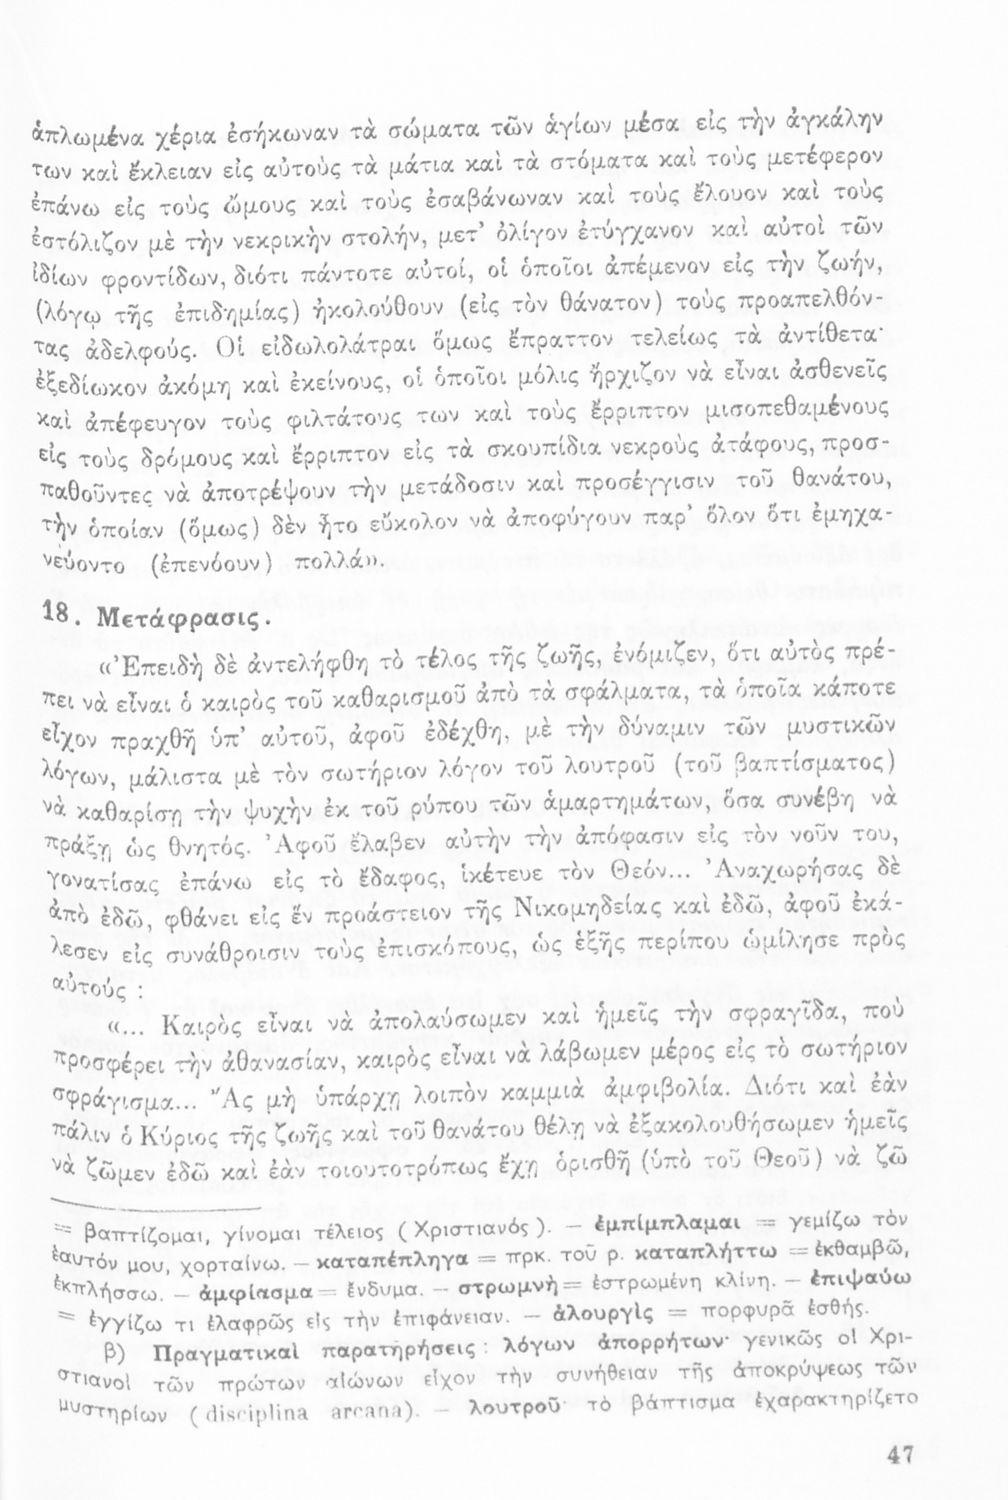 ἁπλωμένα χέρια ἐσήκωναν τὰ σώματα τῶν ἁγίων μέσα εἰς τὴν ἀγκάλην
των καὶ ἔκλειαν εἰς αὐτοὺς τὰ μάτια καὶ τὰ στόματα καὶ τοὺς μετέφερον
ἐπάνω εἰς τοὺς ὤμους καὶ τοὺς ἐσαβάνωναν καὶ τοὺς ἔλουον καὶ τοὺς
ἐστόλιζον μὲ τὴν νεκρικὴν στολήν, μετ' ὀλίγον ἐτύγχανον καὶ αὐτοὶ τῶν
ἰδίων φροντίδων, διότι πάντοτε αὐτοί, οἱ ὁποῖοι ἀπέμενον εἰς τὴν ζωήν,
(λόγῳ τῆς ἐπιδημίας) ἠκολούθουν (εἰς τὸν θάνατον) τοὺς προαπελθόν-
τας ἀδελφούς. Οἱ εἰδωλολάτραι ὅμως ἔπραττον τελείως τὰ ἀντίθετα·
ἐξεδίωκον ἀκόμη καὶ ἐκείνους, οἱ ὁποῖοι μόλις ἤρχιζον νὰ εἶναι ἀσθενεῖς
καὶ ἀπέφευγον τοὺς φιλτάτους των καὶ τοὺς ἔρριπτον μισοπεθαμένους
εἰς τοὺς δρόμους καὶ ἔρριπτον εἰς τὰ σκουπίδια νεκροὺς ἀτάφους, προσ-
παθοῦντες νὰ ἀποτρέψουν τὴν μετάδοσιν καὶ προσέγγισιν τοῦ θανάτου,
τὴν ὁποίαν (ὅμως) δὲν ἦτο εὔκολον νὰ ἀποφύγουν παρ' ὅλον ὅτι ἐμηχα-
νεύοντο (ἐπενόουν) πολλά».
18. Μετάφρασις.
«Ἐπειδὴ δὲ ἀντελήφθη τὸ τέλος τῆς ζωῆς, ἐνόμιζεν, ὅτι αὐτὸς πρέ-
πει νὰ εἶναι ὁ καιρὸς τοῦ καθαρισμοῦ ἀπὸ τὰ σφάλματα, τὰ ὁποῖα κάποτε
εἶχον πραχθῆ ὑπ' αὐτοῦ, ἀφοῦ ἐδέχθη, μὲ τὴν δύναμιν τῶν μυστικῶν
λόγων, μάλιστα μὲ τὸν σωτήριον λόγον τοῦ λουτροῦ (τοῦ βαπτίσματος)
νὰ καθαρίσῃ τὴν ψυχὴν ἐκ τοῦ ρύπου τῶν ἁμαρτημάτων, ὅσα συνέβη νὰ
πράξῃ ὡς θνητός. Ἀφοῦ ἔλαβεν αὐτὴν τὴν ἀπόφασιν εἰς τὸν νοῦν του,
γονατίσας ἐπάνω εἰς τὸ ἔδαφος, ἱκέτευε τὸν Θεόν... Ἀναχωρήσας δὲ
ἀπὸ ἐδῶ, φθάνει εἰς ἓν προάστειον τῆς Νικομηδείας καὶ ἐδῶ, ἀφοῦ ἐκά-
λεσεν εἰς συνάθροισιν τοὺς ἐπισκόπους, ὡς ἑξῆς περίπου ὡμίλησε πρὸς
αὐτούς :
«... Καιρὸς εἶναι νὰ ἀπολαύσωμεν καὶ ἡμεῖς τὴν σφραγῖδα, ποὺ
προσφέρει τὴν ἀθανασίαν, καιρὸς εἶναι νὰ λάβωμεν μέρος εἰς τὸ σωτήριον
σφράγισμα... Ἂς μὴ ὑπάρχῃ λοιπὸν καμμιὰ ἀμφιβολία. Διότι καὶ ἐὰν
πάλιν ὁ Κύριος τῆς ζωῆς καὶ τοῦ θανάτου θέλῃ νὰ ἐξακολουθήσωμεν ἡμεῖς
νὰ ζῶμεν ἐδῶ καὶ ἐὰν τοιουτοτρόπως ἔχῃ ὁρισθῆ (ὑπὸ τοῦ Θεοῦ) νὰ ζῶ
= βαπτίζομαι, γίνομαι τέλειος (Χριστιανός). — ἐμπίμπλαμαι = γεμίζω τὸν
ἑαυτόν μου, χορταίνω. — καταπέπληγα = πρκ. τοῦ ρ. καταπλήττω = ἐκθαμβῶ,
ἐκπλήσσω. — ἀμφίασμα = ἔνδυμα. — στρωμνὴ = ἐστρωμένη κλίνη. — ἐπιψαύω
= ἐγγίζω τι ἐλαφρῶς εἰς τὴν ἐπιφάνειαν. — ἁλουργὶς = πορφυρᾶ ἐσθής.
β) Πραγματικαὶ παρατηρήσεις : λόγων ἀπορρήτων· γενικῶς οἱ Χρι-
στιανοὶ τῶν πρώτων αἰώνων εἶχον τὴν συνήθειαν τῆς ἀποκρύψεως τῶν
μυστηρίων (disciplina arcana). — λουτροῦ· τὸ βάπτισμα ἐχαρακτηρίζετο
47